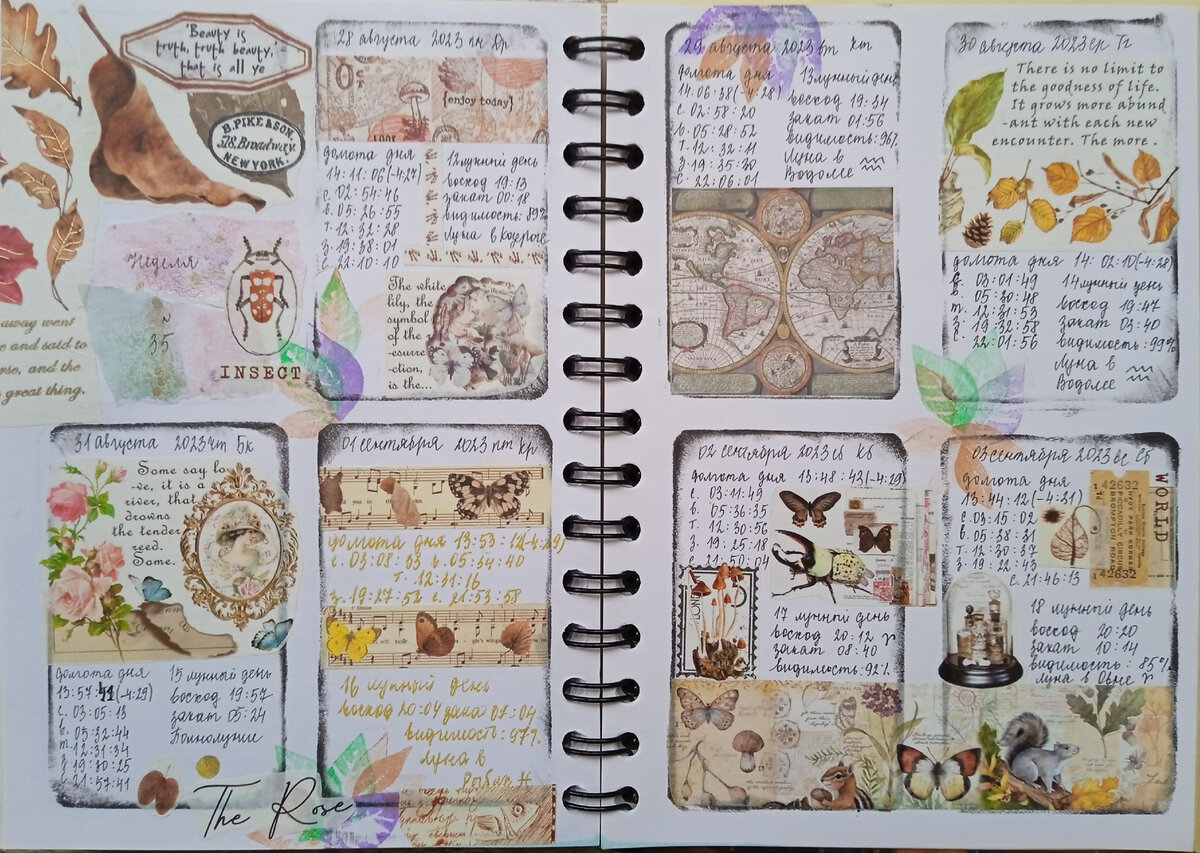 'Beauty is
truth, truth beauty,'
that is all ye
B. PIKE & SON.
518, Broadway.
NEW YORK.
Неделя
35
INSECT
away went
e and said to
rse, and the
great thing.
28 августа 2023 пн
{enjoy today}
долота дня
14:11:06(-4:27)
с. 02:54:46
в. 05:26:55
т. 12:32:28
з. 19:38:01
с. 22:10:10
12 лунный день
восход 19:13
закат 00:18
видимость: 89%
Луна в Козероге
The white
lily, the
symbol
of the
-esurre
-ction,
is the...
29 августа 2023 вт
долота дня
14:06:38(-4:28)
с. 02:58:20
в. 05:28:52
т. 12:32:11
з. 19:35:30
с. 22:06:01
13 лунный день
восход 19:34
закат 01:56
видимость: 96%
Луна в ♒
Водолее
30 августа 2023 ср
There is no limit to
the goodness of life.
It grows more abund
-ant with each new
encounter. The more .
долота дня 14:02:10(-4:28)
с. 03:01:49
в. 05:30:48
т. 12:31:53
з. 19:32:58
с. 22:01:56
14 лунный день
восход 19:47
закат 03:40
видимость: 99%
Луна в
Водолее ♒
31 августа 2023 чт
Some say lo
-ve, it is a
river, that
drowns
the tender
reed.
Some.
долота дня
13:57:41(-4:29)
с. 03:05:13
в. 05:32:44
т. 12:31:34
з. 19:30:25
с. 21:57:41
15 лунный день
восход 19:57
закат 05:24
Полнолуние
The Rose
01 сентября 2023 пт
долота дня 13:53:12(-4:29)
с. 03:08:33 в. 05:34:40
т. 12:31:16
з. 19:27:52 с. 21:53:58
16 лунный день
восход 20:04 зака 07:04
видимость: 97%
Луна в
Рыбах ♓
02 сентября 2023 сб
долота дня 13:48:43(-4:29)
с. 03:11:49
в. 05:36:35
т. 12:30:56
з. 19:25:18
с. 21:50:04
17 лунный день
восход 20:12 ♈
закат 08:40
видимость: 92%
03 сентября 2023 вс
долота дня
13:44:12(-4:31)
с. 03:15:02
в. 05:38:31
т. 12:30:37
з. 19:22:43
с. 21:46:13
42632
PICCADILLY CIRCUS
HYDE PARK CORNER
BROMPTON ROAD
42632
WORLD
18 лунный день
восход 20:20
закат 10:14
видимость: 85%
Луна в Овне ♈